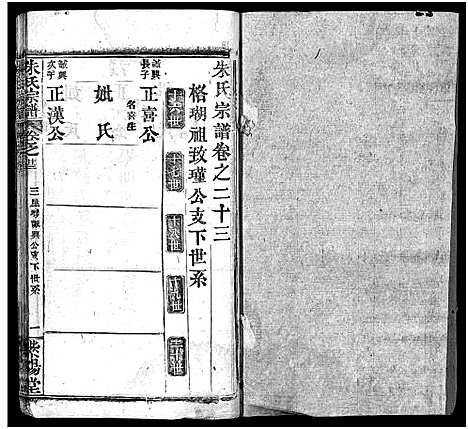 朱氏宗譜卷之二十三
格瑚祖玫瑾公支下世系
十六世
十七世
十八世
十九世
二十世
誠興長子
正喜公
名喜生
妣氏
誠興次子
正漢公
朱氏宗譜
卷之廿三
誠興公支下世系
一
紫陽堂